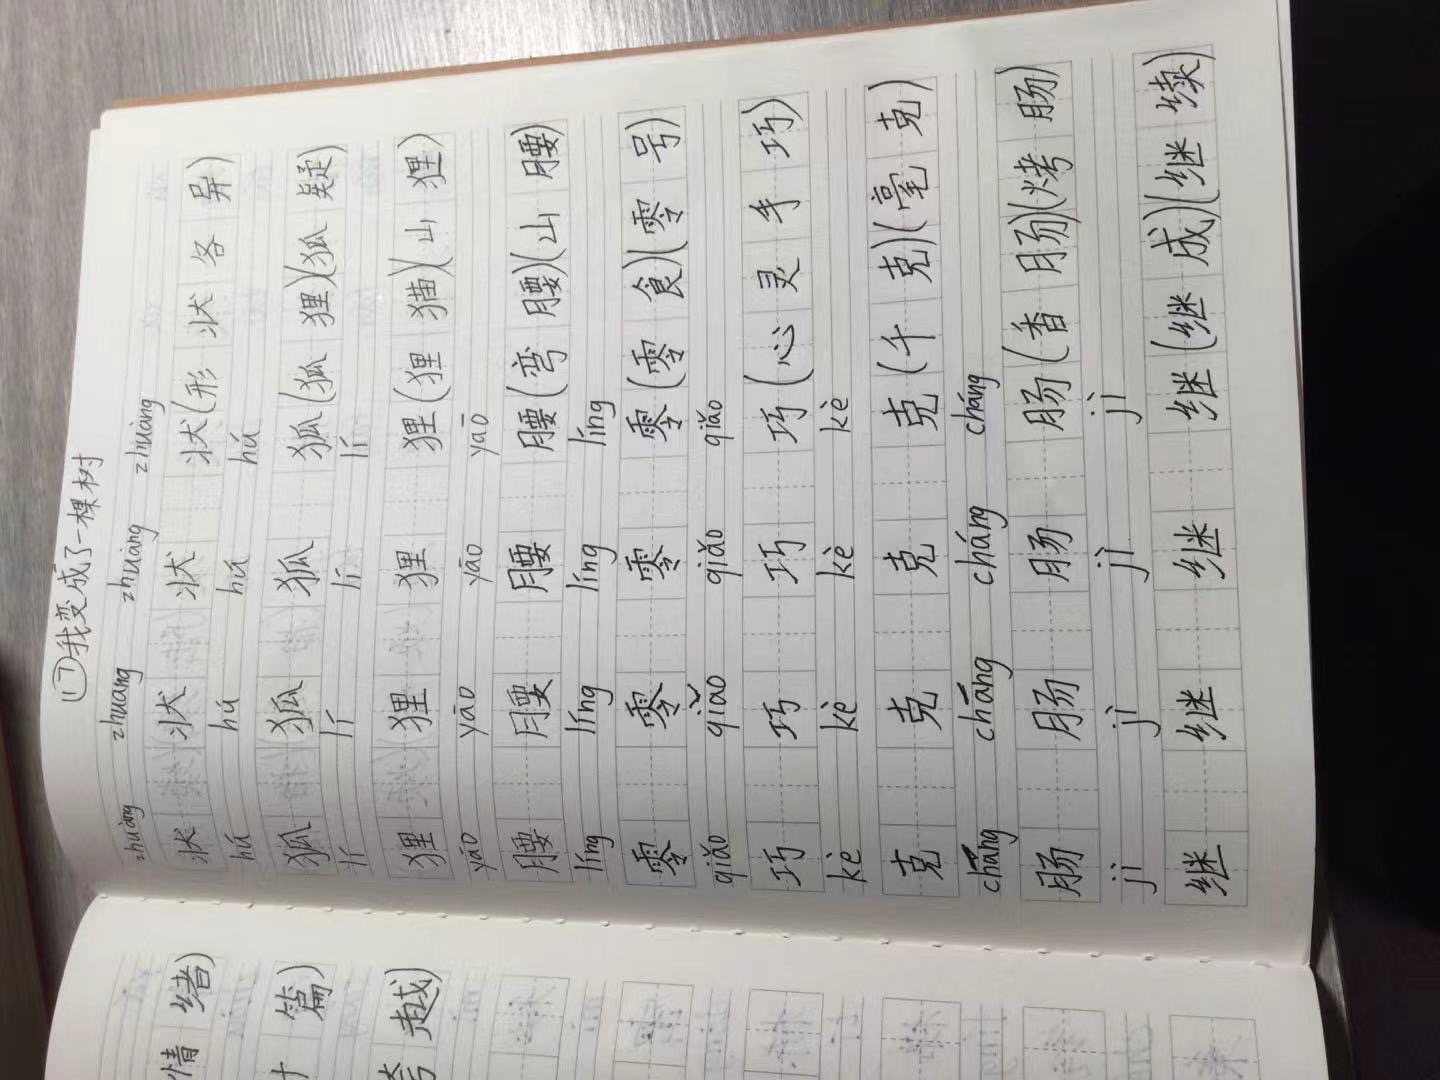 情绪)
篇)
越)
⑰我变成了一棵树
zhuàng zhuàng zhuàng zhuàng
状 状 状 状(形状各异)
hú hú hú hú
狐 狐 狐 狐(狐狸)(狐疑)
lí lí lí lí
狸 狸 狸 狸(狸猫)(山狸)
yāo yāo yāo yāo
腰 腰 腰 腰(弯腰)(山腰)
líng líng líng líng
零 零 零 零(零食)(零号)
qiǎo qiǎo qiǎo qiǎo
巧 巧 巧 巧(心灵手巧)
kè kè kè kè
克 克 克 克(千克)(毫克)
cháng cháng cháng cháng
肠 肠 肠 肠(香肠)(烤肠)
jì jì jì jì
继 继 继 继(继成)(继续)